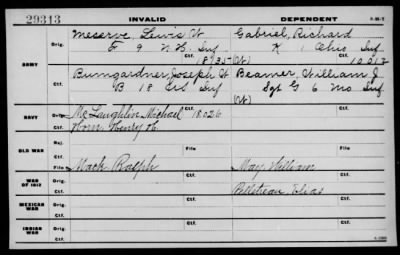 29313 INVALID DEPENDENT
ARMY
Orig. Meserve, Lewis W Gabriel, Richard
F 9 N.H. Inf K 1 Ohio Inf
18935 (W) 10012
Ctf. Bumgardner, Joseph Beamer, William J
B 18 Inf Sgt G 6 Mo Inf
(W)
NAVY
Orig. McLaughlin Michael 18026
Ctf. Horn Henry H.
OLD WAR
Rej.
Ctf.
File File
WAR OF 1812
Orig. Mack Ralph May William
Ctf. Pelletreau, Elias
MEXICAN WAR
Orig.
Ctf.
INDIAN WAR
Orig.
Ctf.